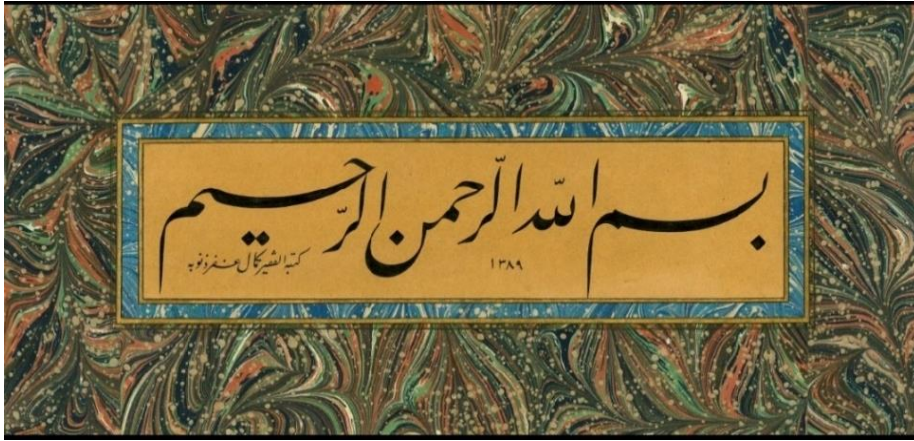 بسم الله الرّحمن الرّحيم
١٣٨٩
كتبه الفقير كمال غفر ذنوبه